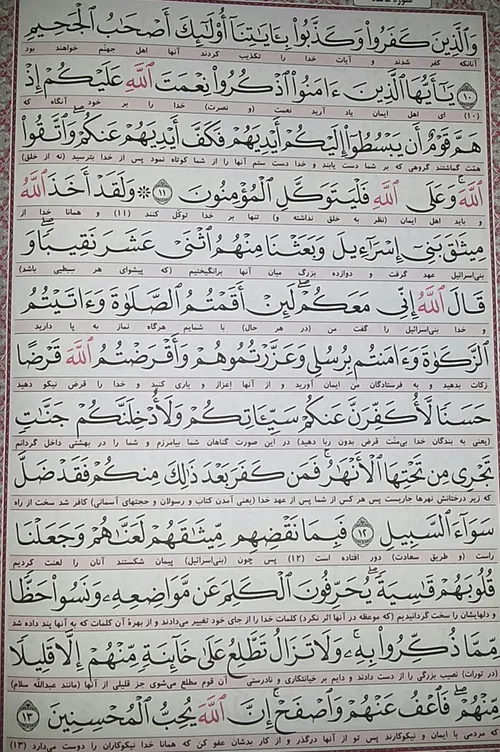 وَٱلَّذِينَ كَفَرُوا۟ وَكَذَّبُوا۟ بِـَٔايَـٰتِنَآ أُو۟لَـٰٓئِكَ أَصْحَـٰبُ ٱلْجَحِيمِ
آنانکه کفر شدند و آیات خدا را تکذیب کردند آنها اهل جهنّم خواهند بود
١٠ يَـٰٓأَيُّهَا ٱلَّذِينَ ءَامَنُوا۟ ٱذْكُرُوا۟ نِعْمَتَ ٱللَّهِ عَلَيْكُمْ إِذْ
(۱۰) ای اهل ایمان یاد آرید نعمت (و نصرت) خدا را بر خود آنگاه که
هَمَّ قَوْمٌ أَن يَبْسُطُوٓا۟ إِلَيْكُمْ أَيْدِيَهُمْ فَكَفَّ أَيْدِيَهُمْ عَنكُمْ ۖ وَٱتَّقُوا۟
همّت گماشتند گروهی که بر شما دست یابند و خدا دست ستم آنها را از شما کوتاه نمود پس از خدا بترسید (نه از خلق)
ٱللَّهَ ۚ وَعَلَى ٱللَّهِ فَلْيَتَوَكَّلِ ٱلْمُؤْمِنُونَ ١١ ۞ وَلَقَدْ أَخَذَ ٱللَّهُ
و باید اهل ایمان (نظر به خلق نداشته و) تنها بر خدا توکّل کنند (۱۱) و همانا خدا از
مِيثَـٰقَ بَنِىٓ إِسْرَٰٓءِيلَ وَبَعَثْنَا مِنْهُمُ ٱثْنَىْ عَشَرَ نَقِيبًا ۖ وَ
بنی‌اسرائیل عهد گرفت و دوازده بزرگ میان آنها برانگیختیم (که پیشوای هر سبطی باشد)
قَالَ ٱللَّهُ إِنِّى مَعَكُمْ ۖ لَئِنْ أَقَمْتُمُ ٱلصَّلَوٰةَ وَءَاتَيْتُمُ
و خدا بنی‌اسرائیل را گفت من (در هر حال) با شمایم هرگاه نماز به پا دارید و
ٱلزَّكَوٰةَ وَءَامَنتُم بِرُسُلِى وَعَزَّرْتُمُوهُمْ وَأَقْرَضْتُمُ ٱللَّهَ قَرْضًا
زکات بدهید و به فرستادگان من ایمان آورید و از آنها اعزاز و یاری کنید و خدا را قرض نیکو دهید
حَسَنًا لَّأُكَفِّرَنَّ عَنكُمْ سَيِّـَٔاتِكُمْ وَلَأُدْخِلَنَّكُمْ جَنَّـٰتٍ
(یعنی به بندگان خدا بی‌منّت قرض بدون ربا دهید) در این صورت گناهان شما بیامرزم و شما را در بهشتی داخل گردانم
تَجْرِى مِن تَحْتِهَا ٱلْأَنْهَـٰرُ ۚ فَمَن كَفَرَ بَعْدَ ذَٰلِكَ مِنكُمْ فَقَدْ ضَلَّ
که زیر درختانش نهرها جاریست پس هر کس از شما پس از عهد خدا (یعنی آمدن کتاب و رسولان و حجتهای آسمانی) کافر شد سخت از راه
سَوَآءَ ٱلسَّبِيلِ ١٢ فَبِمَا نَقْضِهِم مِّيثَـٰقَهُمْ لَعَنَّـٰهُمْ وَجَعَلْنَا
راست (و طریق سعادت) دور افتاده است (۱۲) پس چون (بنی‌اسرائیل) پیمان شکستند آنان را لعنت کردیم
قُلُوبَهُمْ قَـٰسِيَةً ۖ يُحَرِّفُونَ ٱلْكَلِمَ عَن مَّوَاضِعِهِۦ ۙ وَنَسُوا۟ حَظًّا
و دلهایشان را سخت گردانیدیم (که موعظه در آنها اثر نکرد) کلمات خدا را از جای خود تغییر می‌دادند و از بهرهٔ آن کلمات که به آنها پند داده شد
مِّمَّا ذُكِّرُوا۟ بِهِۦ ۚ وَلَا تَزَالُ تَطَّلِعُ عَلَىٰ خَآئِنَةٍ مِّنْهُمْ إِلَّا قَلِيلًا
(در تورات) نصیب بزرگی را از دست دادند و دایم بر خیانتکاری و نادرستی آن قوم مطلع می‌شوی جز قلیلی از آنها (مانند عبدالله سلام)
مِّنْهُمْ ۖ فَٱعْفُ عَنْهُمْ وَٱصْفَحْ ۚ إِنَّ ٱللَّهَ يُحِبُّ ٱلْمُحْسِنِينَ ١٣
که مردمی با ایمان و نیکوکارند پس تو از آنها درگذر و از کار بدشان عفو کن که همانا خدا نیکوکاران را دوست می‌دارد (۱۳)